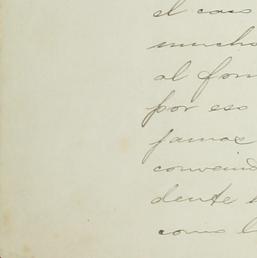 el caso
mucho
al fon
por eso
jamas
convenid
dente
como l